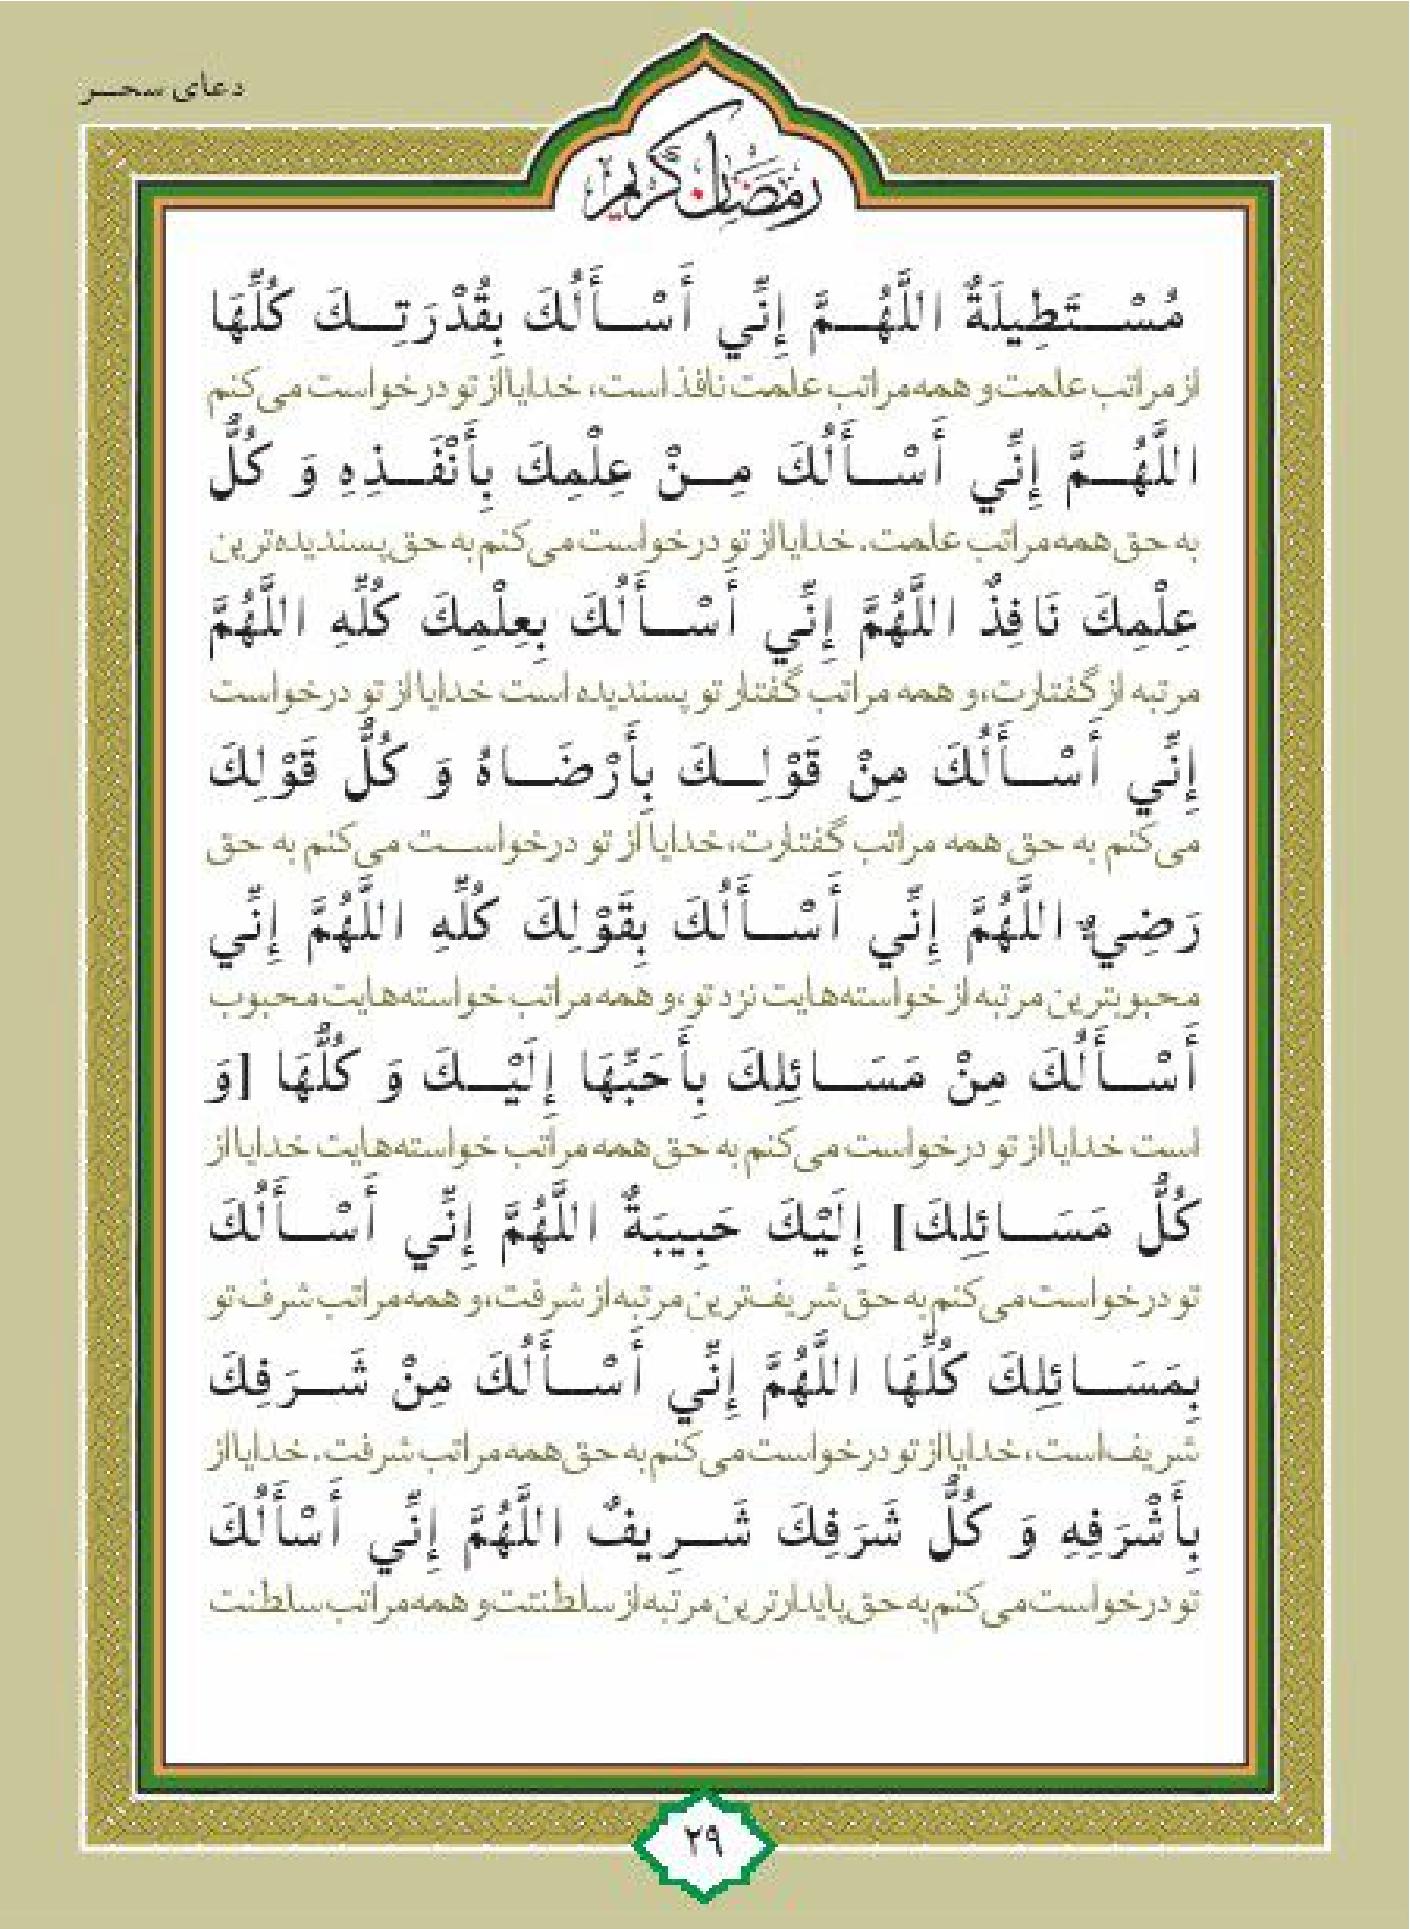 دعای سحر
رمضان کریم
مُسْتَطِيلَةٌ اللَّهُمَّ إِنِّي أَسْأَلُكَ بِقُدْرَتِكَ كُلِّهَا
از مراتب علمت و همه مراتب علمت نافذ است، خدایا از تو درخواست می‌کنم
اللَّهُمَّ إِنِّي أَسْأَلُكَ مِنْ عِلْمِكَ بِأَنْفَذِهِ وَ كُلُّ
به حق همه مراتب علمت. خدایا از تو درخواست می‌کنم به حق پسندیده‌ترین
عِلْمِكَ نَافِذٌ اللَّهُمَّ إِنِّي أَسْأَلُكَ بِعِلْمِكَ كُلِّهِ اللَّهُمَّ
مرتبه از گفتارت، و همه مراتب گفتار تو پسندیده است خدایا از تو درخواست
إِنِّي أَسْأَلُكَ مِنْ قَوْلِكَ بِأَرْضَاهُ وَ كُلُّ قَوْلِكَ
می‌کنم به حق همه مراتب گفتارت، خدایا از تو درخواست می‌کنم به حق
رَضِيٌّ اللَّهُمَّ إِنِّي أَسْأَلُكَ بِقَوْلِكَ كُلِّهِ اللَّهُمَّ إِنِّي
محبوبترین مرتبه از خواسته‌هایت نزد تو، و همه مراتب خواسته‌هایت محبوب
أَسْأَلُكَ مِنْ مَسَائِلِكَ بِأَحَبِّهَا إِلَيْكَ وَ كُلُّهَا [وَ
است خدایا از تو درخواست می‌کنم به حق همه مراتب خواسته‌هایت خدایا از
كُلُّ مَسَائِلِكَ] إِلَيْكَ حَبِيبَةٌ اللَّهُمَّ إِنِّي أَسْأَلُكَ
تو درخواست می‌کنم به حق شریف‌ترین مرتبه از شرفت، و همه مراتب شرف تو
بِمَسَائِلِكَ كُلِّهَا اللَّهُمَّ إِنِّي أَسْأَلُكَ مِنْ شَرَفِكَ
شریف است، خدایا از تو درخواست می‌کنم به حق همه مراتب شرفت. خدایا از
بِأَشْرَفِهِ وَ كُلُّ شَرَفِكَ شَرِيفٌ اللَّهُمَّ إِنِّي أَسْأَلُكَ
تو درخواست می‌کنم به حق پایدارترین مرتبه از سلطنتت و همه مراتب سلطنت
۲۹